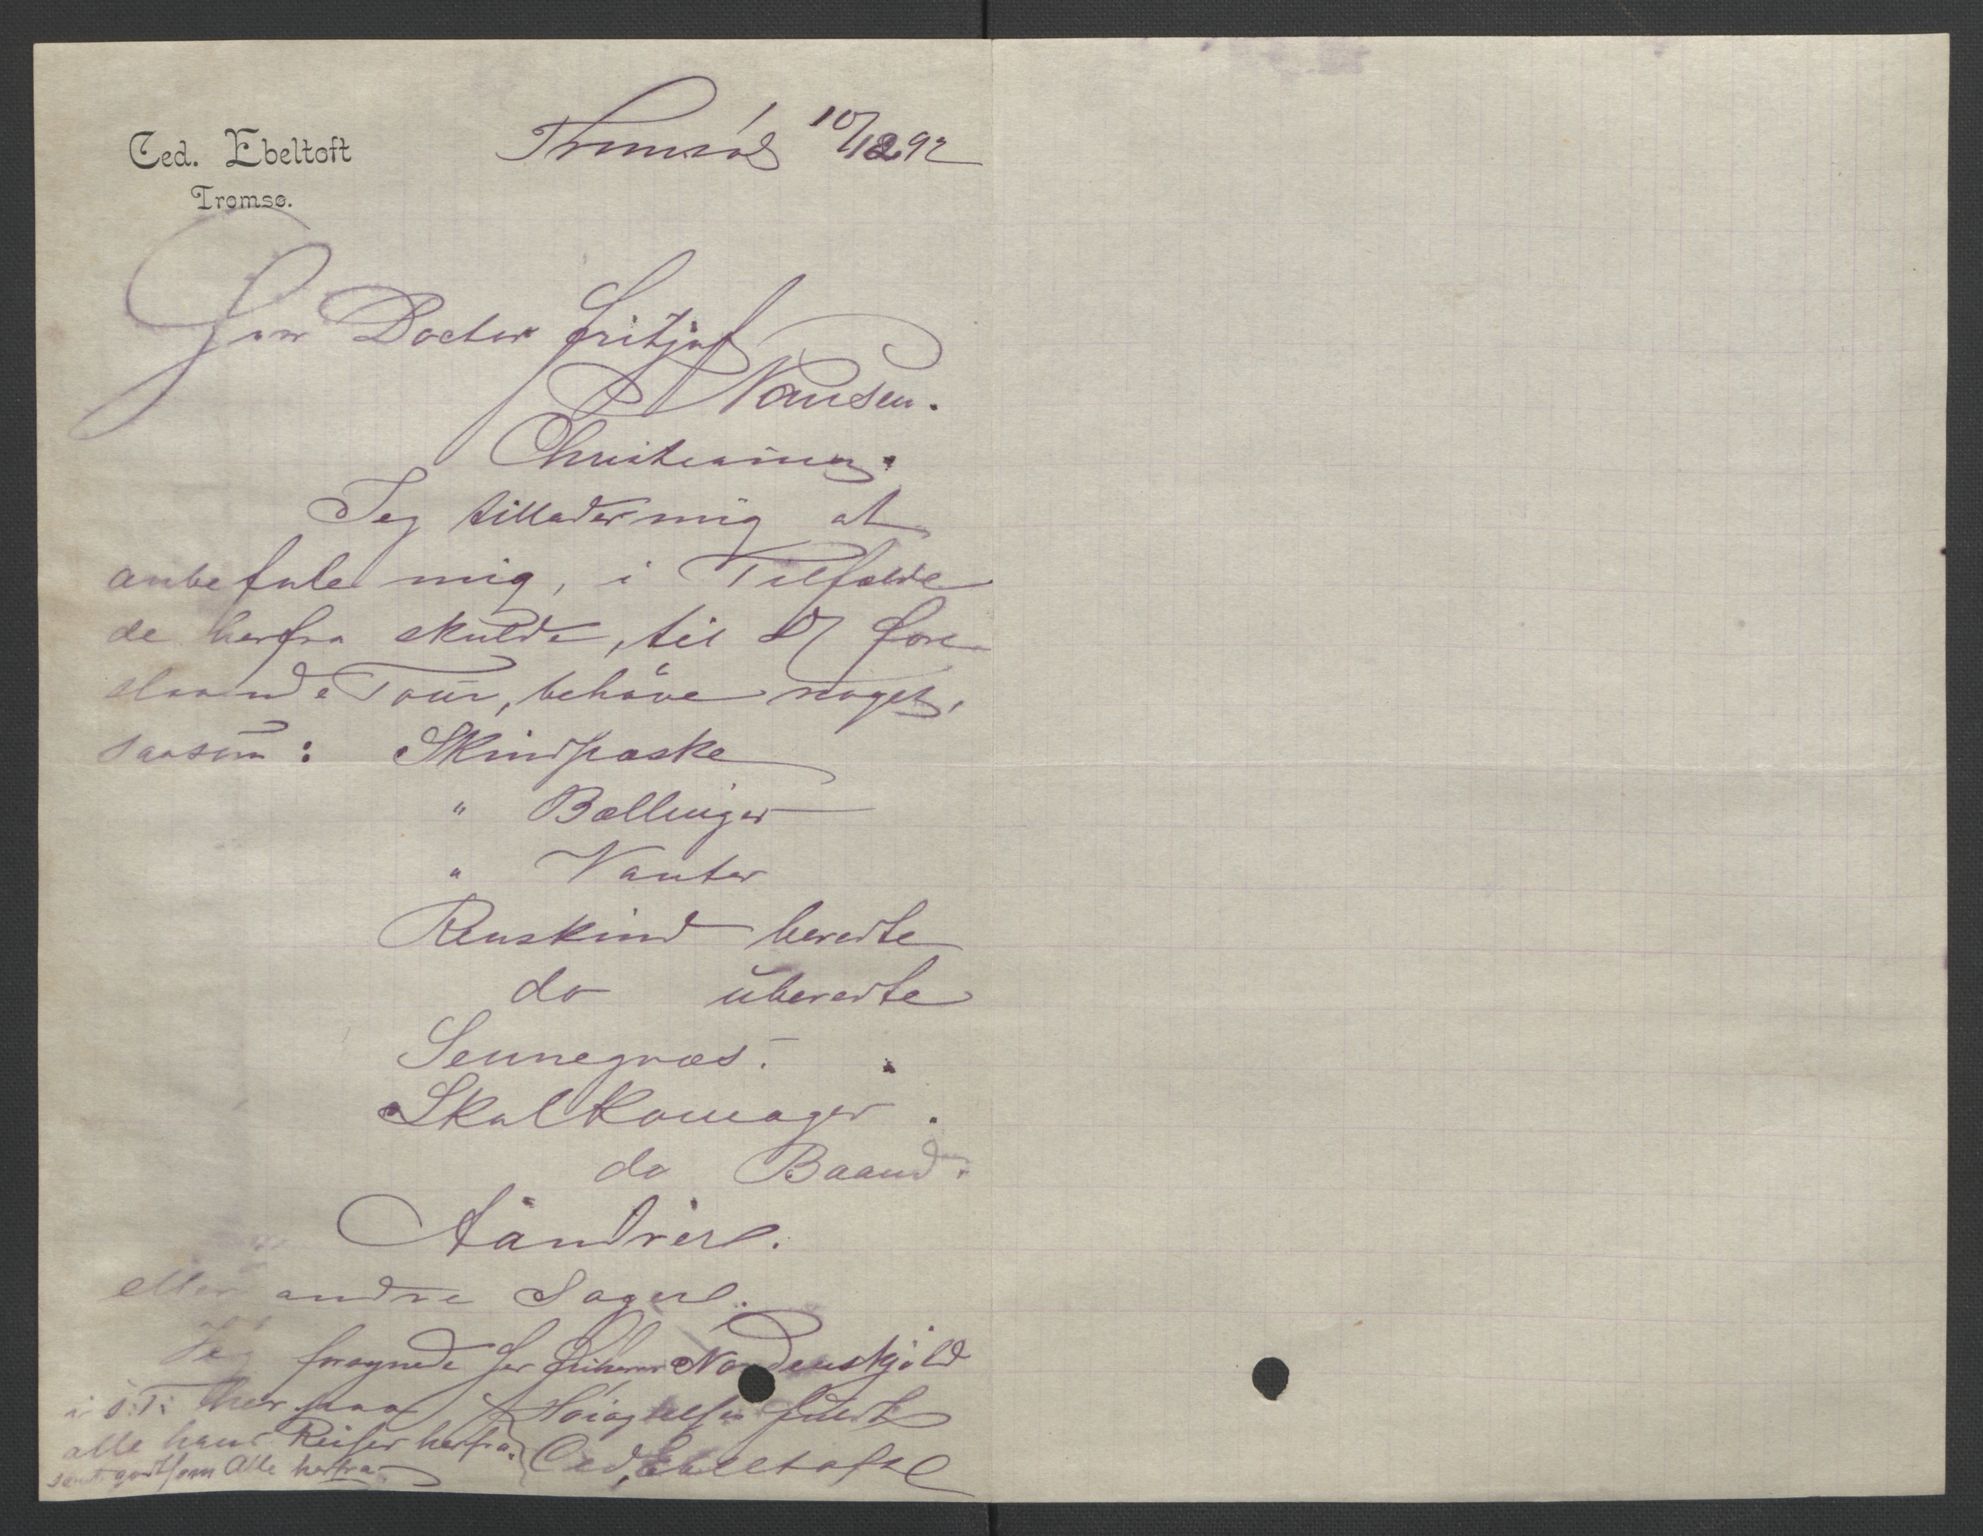 Ced. Ebeltoft
Tromsø.
Tromsø d 10/12 92
Herr Doctor Fritjof
Nansen.
Christiania.
Jeg tillader mig at
anbefale mig, i Tilfælde
de herfra skulde, til D/ fore-
staaende Tour, behöve noget,
saasom: Skindpæske
" Bællinger
" Vanter
Renskind beredte
do uberedte
Sennegræs.
Skalkomager.
do Baand.
eller andre Sager.
Jeg forsynede Herr Friherre Nordenskjöld
i s: T: her paa
alle hans Reiser herfra
samt godt som Alle herfra
Höiagtelsesfuldt
Ced. Ebeltoft